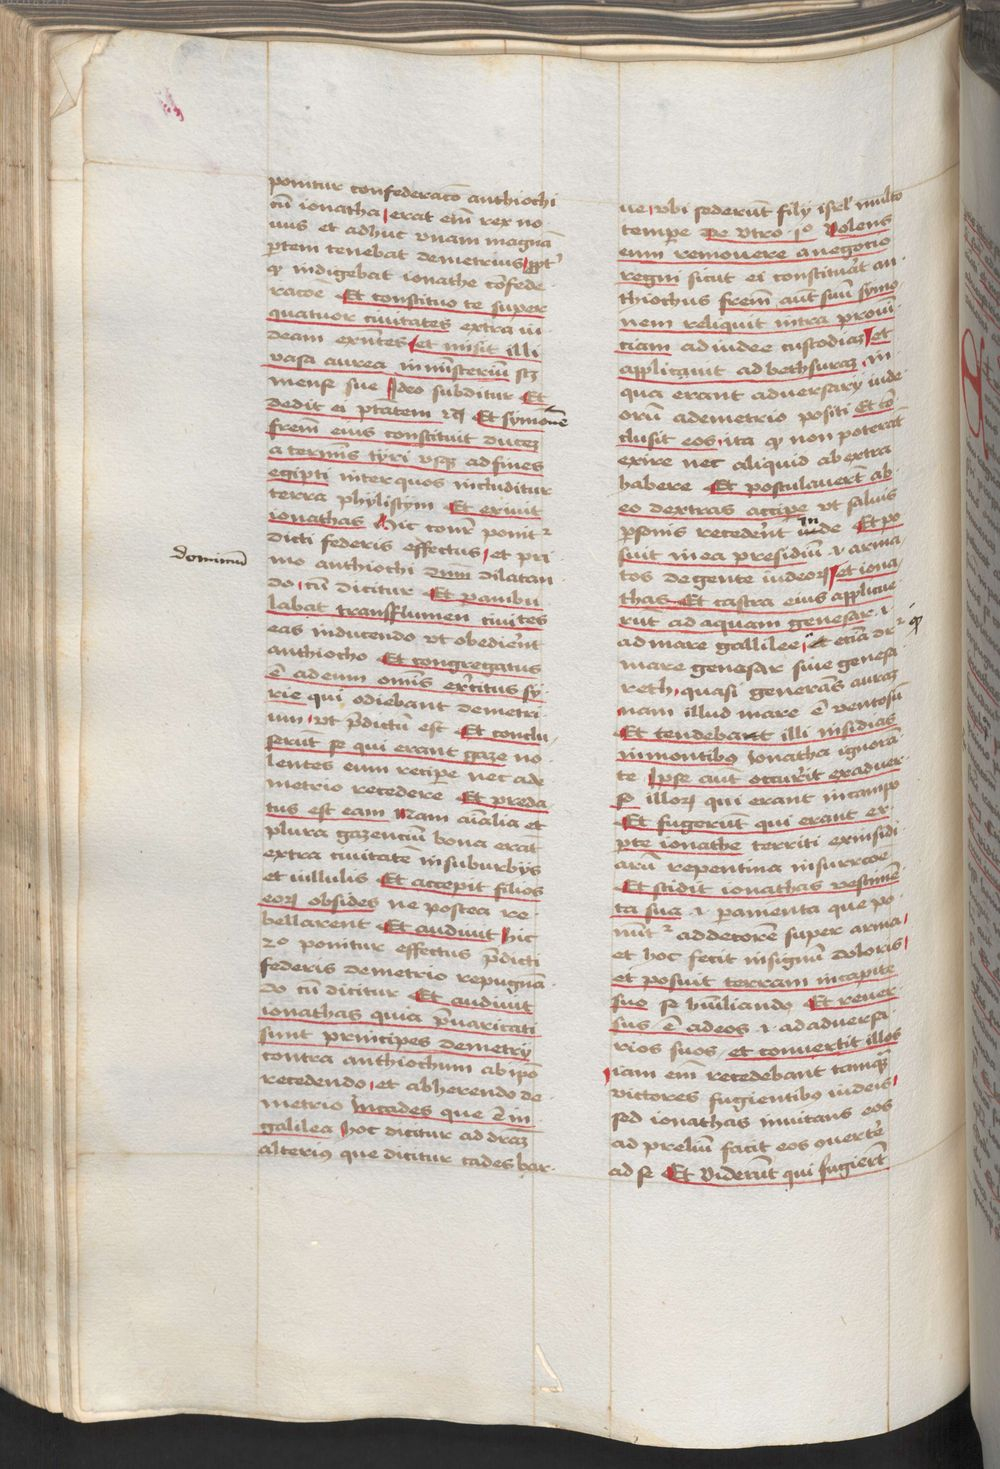 ponitur confederacō anthiochi
cū ionatha erat em̄ rex no
uus et adhuc vnam magnā
ꝑtem tenebat demetrius ꝓpt᷑
qꝫ indigebat ionathe cōfede
racoē Et constituo te super
quatuor ciuitates extra iu
deam exn̄tes et misit illi
vasa aurea in mīsteriū scꝫ
mense sue Ideo subditur Et
dedit ei ptātem rc̄ Et symonē
frem̄ eius constituit duceꝫ
a termīs tyri vsqꝫ ad fines
egipti inter quos includitur
terra phylistym Et exiuit
ionathas Hic conr̄ ponit᷑
dicti federis effectus et pri
mo anthiochi dnm̄ dilatan
dominiū
do cū dicitur Et pambu
labat transflumen ciuites
eas inducendo vt obedirēt
anthiocho Et congregatus
ē ad eum omīs exrcitus sy
rie qui odiebant demetri
um vt p̄dictū est Et conclu
serūt se qui erant gaze no
lentes eum recipe nec a de
metrio recedere Et preda
tus est eam Nam aīalia et
plura gazenciū bona erāt
extra ciuitatē in suburbijs
et uillulis Et accepit filios
eoꝝ obsides ne postea re
bellarent Et audiuit Hic
2o ponitur effectus p̄dicti
federis demetrio repugnā
do cū dicitur Et audiuit
ionathas quia p̄uaricati
sunt principes demetrij
contra anthiochum ab ipō
recedendo et adherendo de
metrio In cades que ē in
galilea hoc dicitur ad dr̄aꝫ
alterius que dicitur cades bar
ne vbi sederūt filij isrl̄ multo
tempe De vtro 1o Volens
eum remouere a negocio
regni sicut ei constituat an
thiochus frem̄ aūt suū symo
nem reliquit intra prouin
ciam ad iudee custodiaꝫ et
applicauit ad bethsuraꝫ in
qua erant aduersarij iude
orū a demetrio positi Et cō
clusit eos ita qꝫ non poterāt
exire nec aliquid ab extra
habere Et postulauerūt ab
eo dextras accipe vt saluis
ꝑsonis recederēt inde Et po
suit in ea presidiū .i. arma
tos de gente iudeoꝝ et iona
thas Et castra eius applicue
rūt ad aquam genesar .i.
ad mare gallilee et eciā dr᷑ qꝫ
mare genesar siue genesa
reth quasi generās auraꝫ
nam illud mare ē ventosū
Et tendebant illi insidias
in montibꝫ Ionatha ignorā
te Ipse aūt occurrit ex aduer
so illoꝝ qui erant in campo
Et fugerūt qui erant ex
ꝑte ionathe territi ex insidi
arū repentina insurrcoē
Et scidit ionathas vestimē
ta sua .i. ꝑamenta que po
nūt᷑ ad decorē super arma
et hoc fecit in signū doloris
et posuit terram in capite
suo se hūiliando Et reuer
sus ē ad eos .i. ad aduersa
rios suos et conuertit illos
iam em̄ recedebant tamqꝫ
victores fugientibꝫ iudeis
sed ionathas inuitans eos
ad preliū facit eos ꝯuertē
ad se Et viderūt qui fugierūt